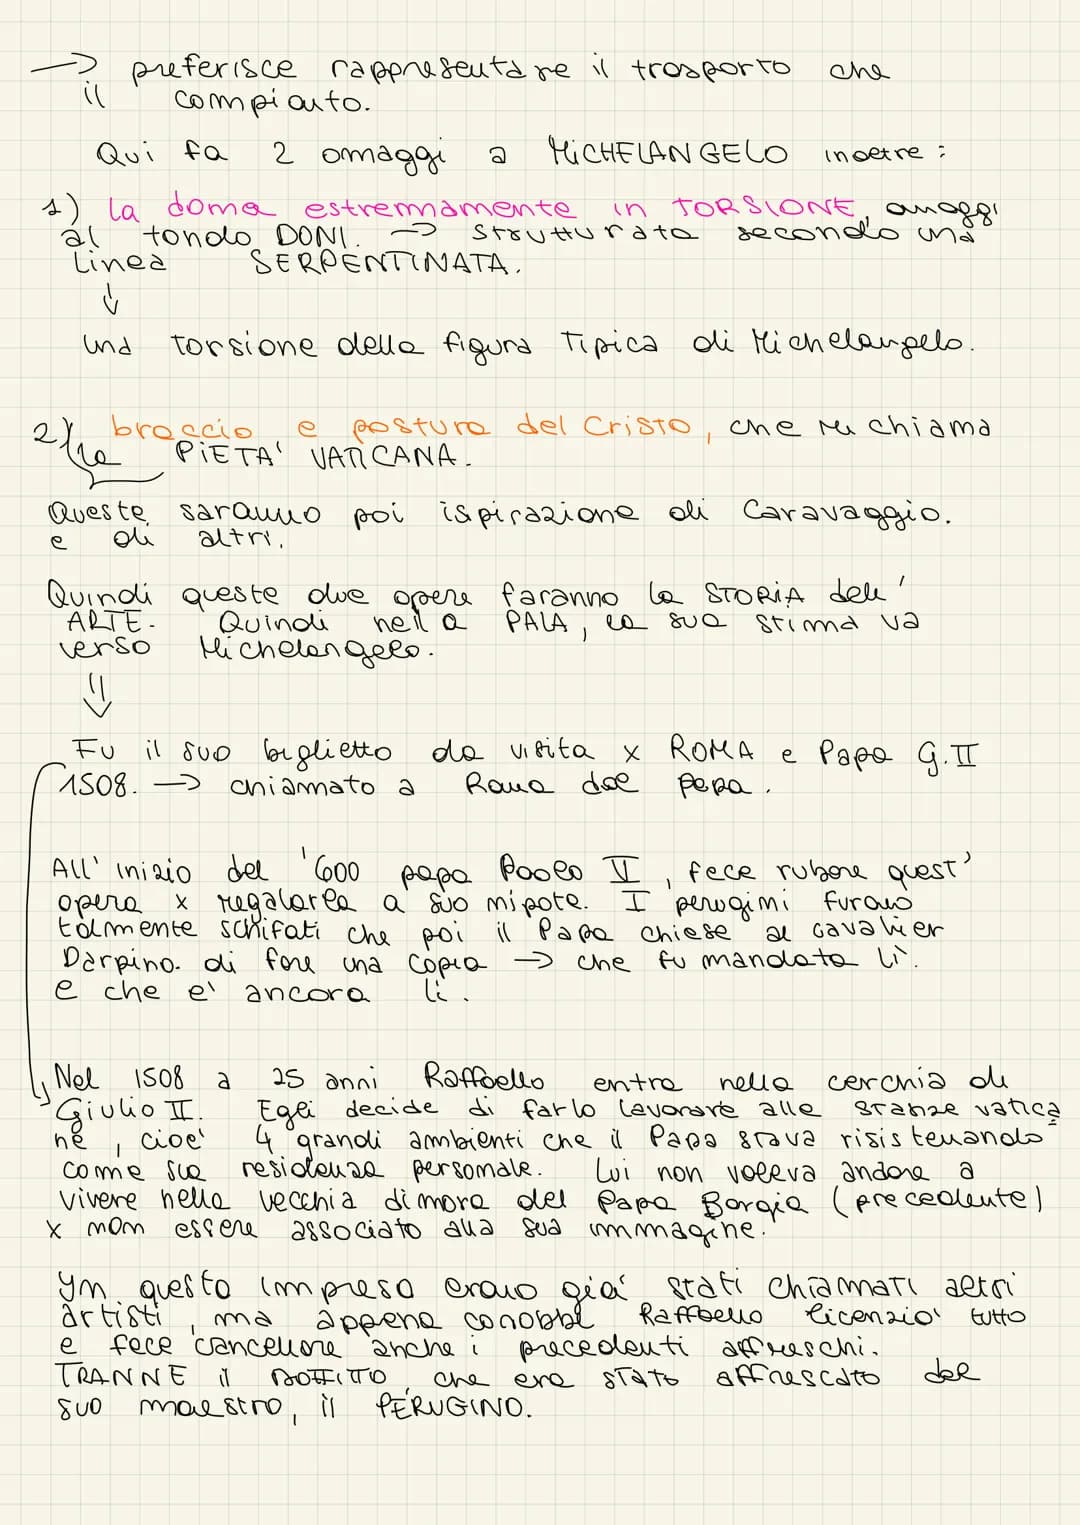 → preferisce rappresentare il trasporto che
il compianto.
Qui fa 2 omaggi a MICHELANGELO inoltre :
1) la donna estremamente in TORSIONE, omaggi
al tondo DONI. → strutturata secondo una
linea SERPENTINATA.
↓
una torsione della figura Tipica di Michelangelo.
2) braccio e postura del Cristo, che richiama
la PIETA' VATICANA.
Queste saranno poi ispirazione di Caravaggio.
e di altri.
Quindi queste due opere faranno la STORIA dell'
ARTE. Quindi nella PALA, la sua stima va
verso Michelangelo.
⇓
Fu il suo biglietto da visita x ROMA e Papa G.II
1508. → chiamato a Roma dal papa.
All' inizio del '600 papa Paolo V, fece rubare quest'
opera x regalarla a suo nipote. I perugini furono
talmente schifati che poi il Papa chiese al cavalier
Darpino di fare una copia → che fu mandata lì.
e che e' ancora lì.
Nel 1508 a 25 anni Raffaello entra nella cerchia di
Giulio II. Egli decide di farlo lavorare alle stanze vatica
ne, cioe' 4 grandi ambienti che il Papa stava risistemando
come sua residenza personale. Lui non voleva andare a
vivere nella vecchia dimora del Papa Borgia (precedente)
x non essere associato alla sua immagine.
In questa impresa erano gia' stati chiamati altri
artisti, ma appena conobbe Raffaello licenzio' tutto
e fece cancellare anche i precedenti affreschi.
TRANNE il SOFFITTO, che era stato affrescato dal
suo maestro, il PERUGINO.